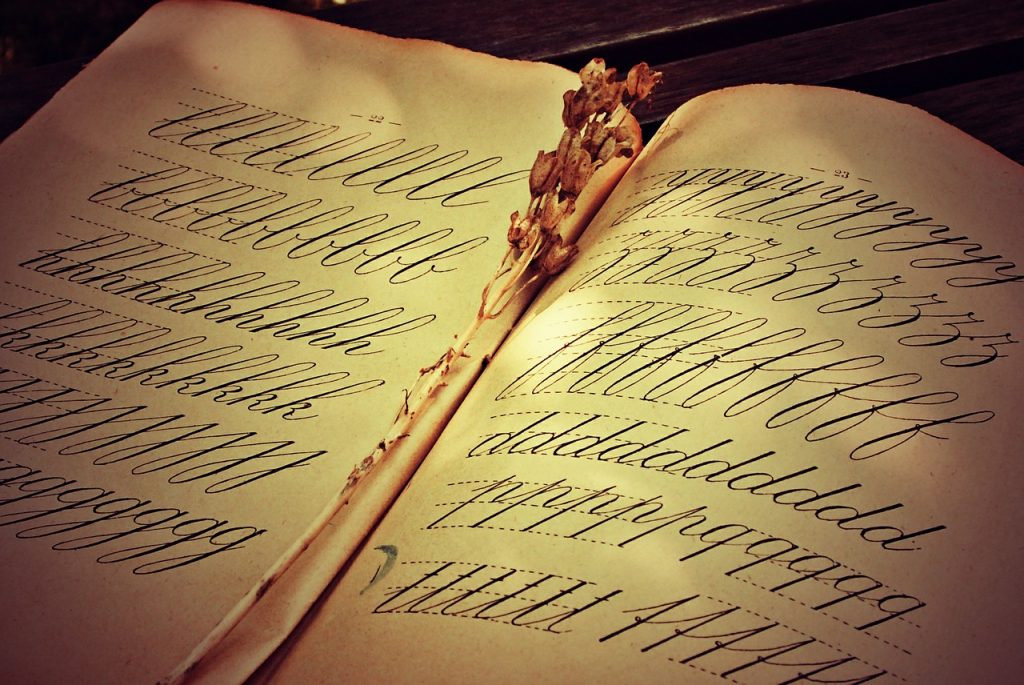 22
lllllllllllll
bbbbbbbbbb
hhhhhhhhhhh
kkkkkkkkkk
jjjjjjjj
ggggggggg
23
yyyyyyyyyyy
zzzzzzzzzz
ffffffffff
dddddddddddd
ppppppqqqqqq
ttttttt